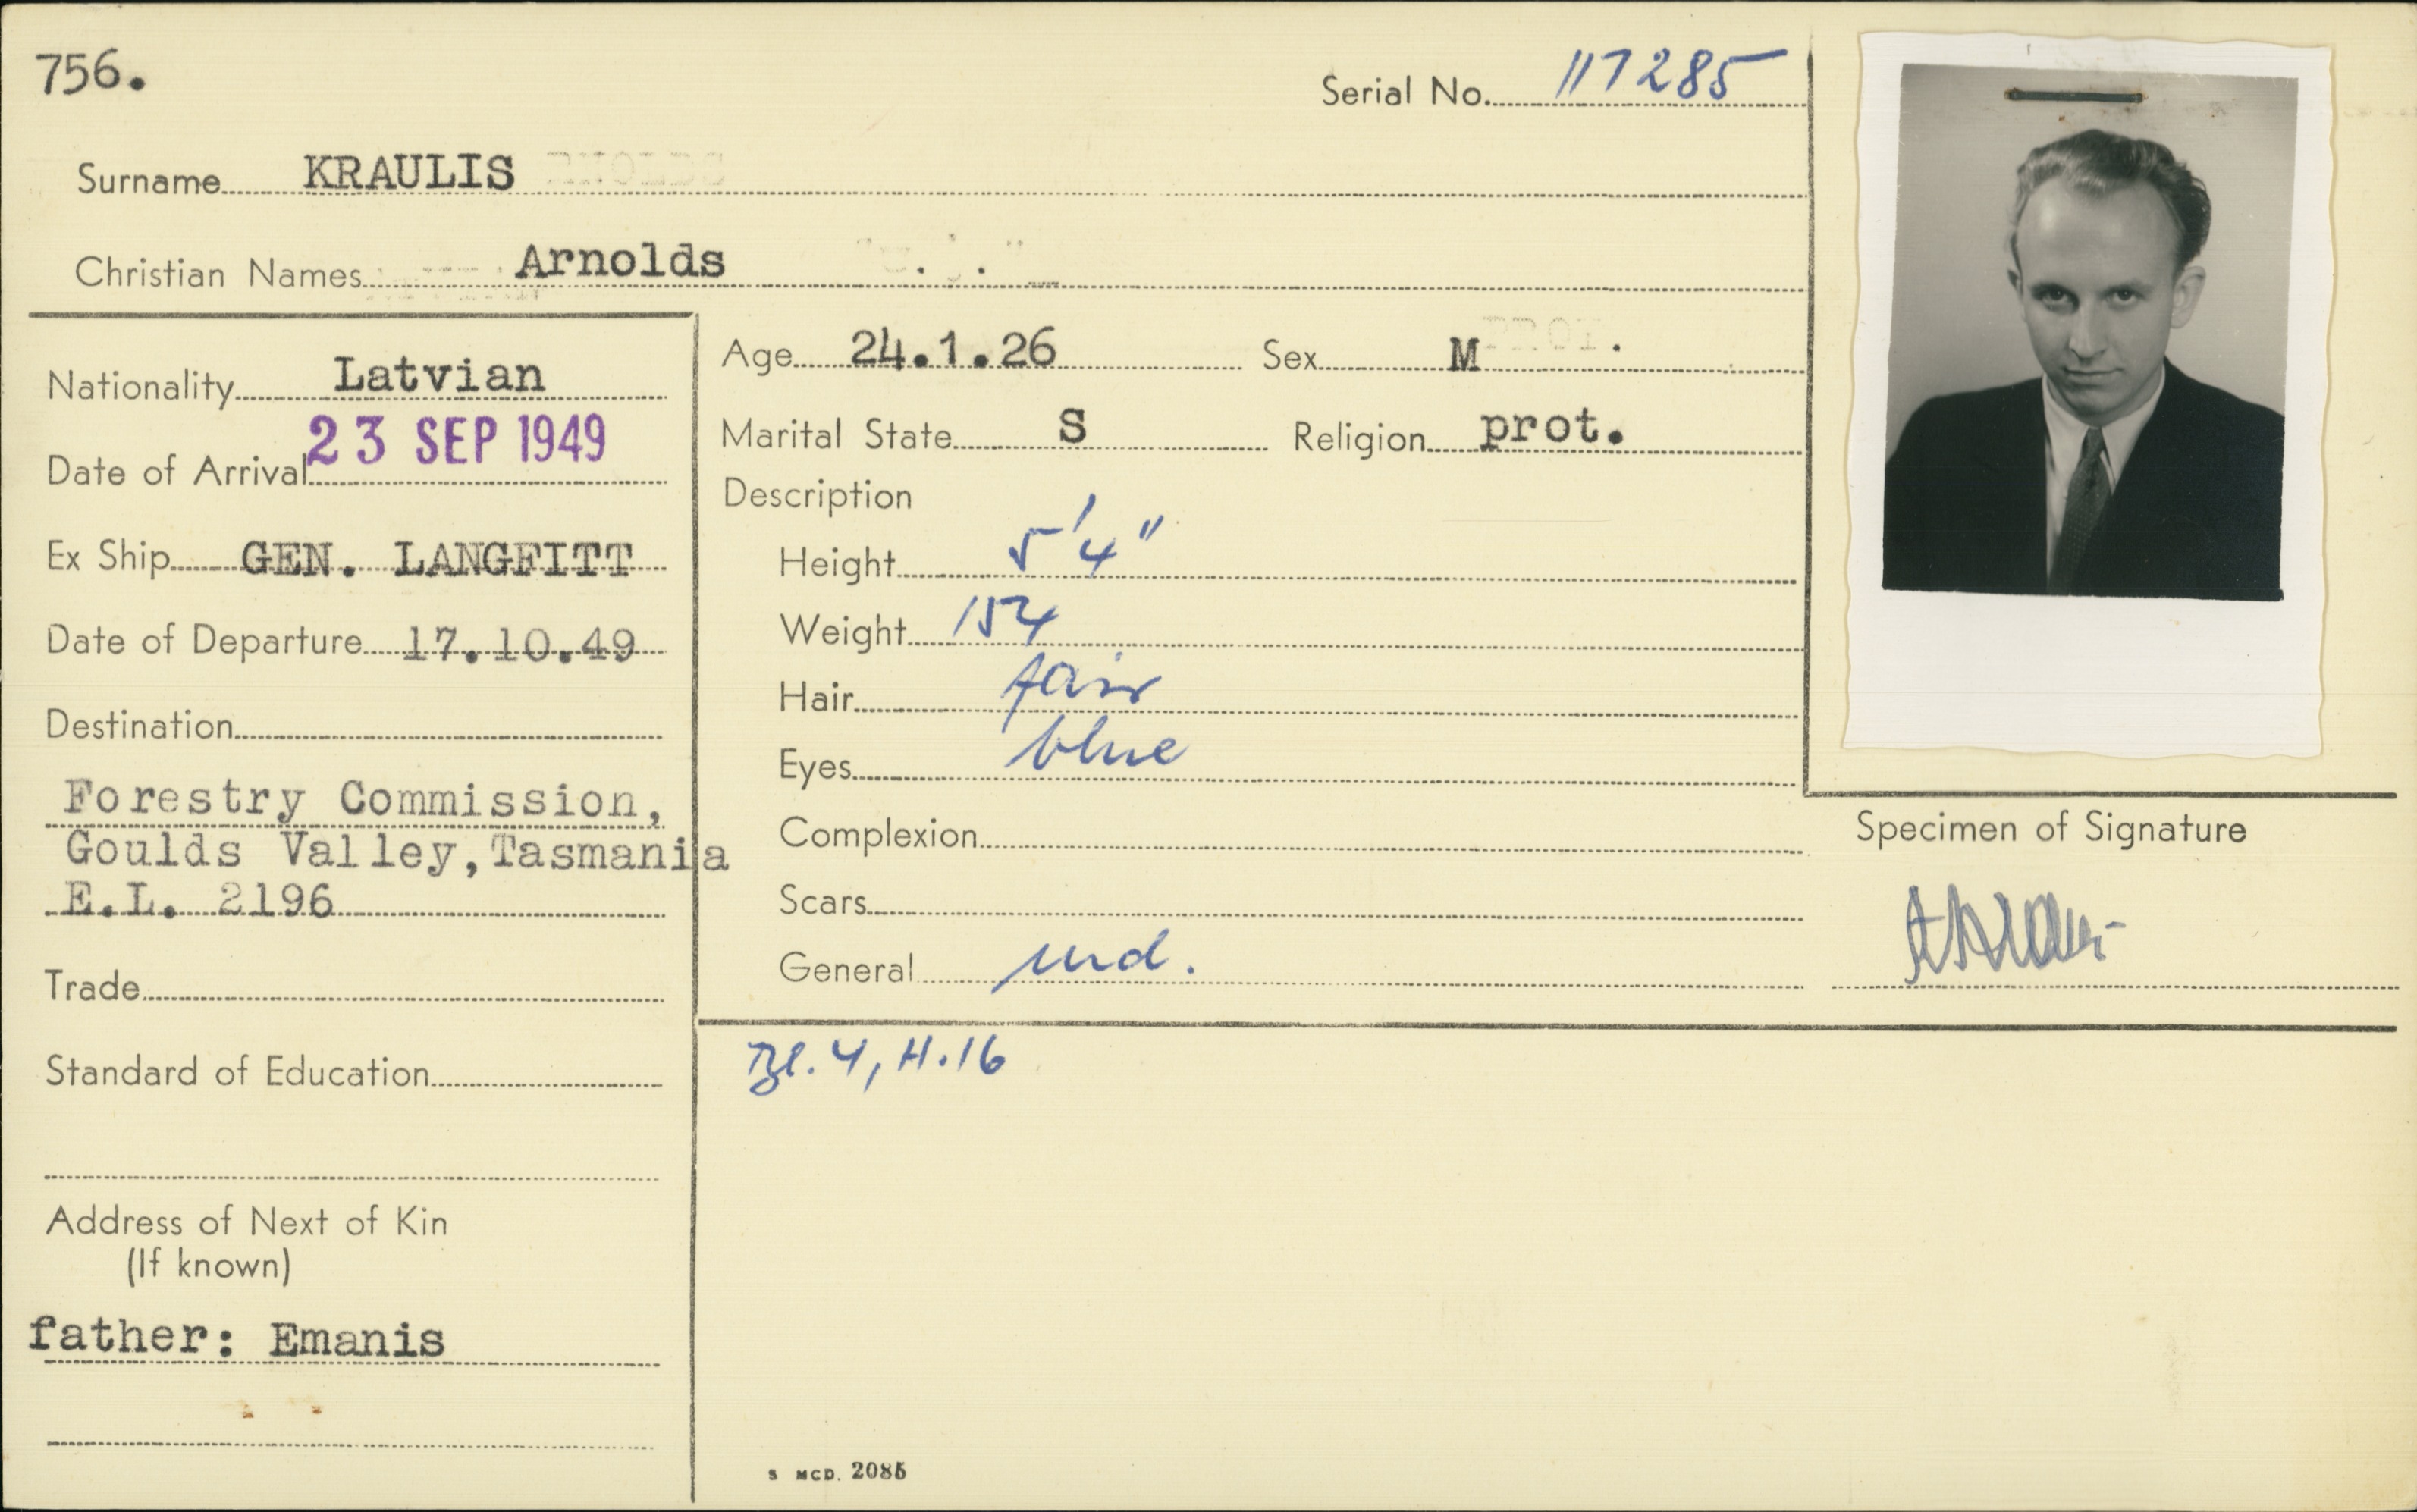 756.
Serial No. 117285
Surname KRAULIS
Christian Names Arnolds
Nationality Latvian
Date of Arrival 23 SEP 1949
Ex Ship GEN. LANGFITT
Date of Departure 17.10.49
Destination
Forestry Commission,
Goulds Valley, Tasmania
E.L. 2196
Trade
Standard of Education
Address of Next of Kin
(If known)
father: Emanis
Age 24.1.26 Sex M
Marital State S Religion prot.
Description
Height 5'4"
Weight 154
Hair fair
Eyes blue
Complexion
Scars
General md.
Bl. 4, H.16
S MCD. 2085
Specimen of Signature